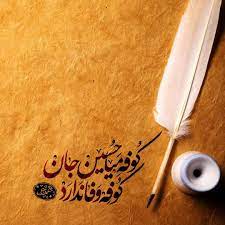 کوفه میا حسین جان
کوفه وفا ندارد